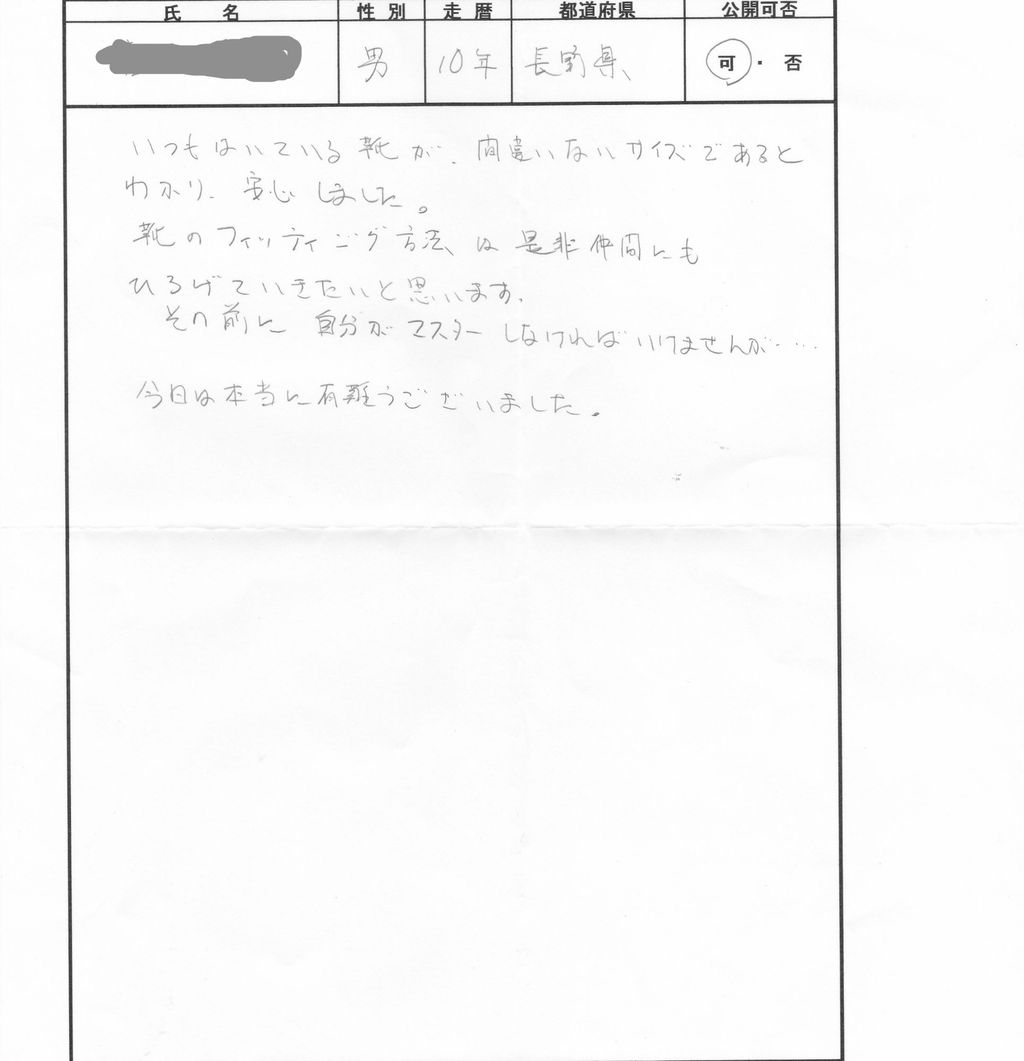 氏 名 性別 走暦 都道府県 公開可否
男 10年 長野県 可・否
いつもはいている靴が、間違いないサイズであると
わかり、安心しました。
靴のフィッティング方法は是非仲間にも
ひろげていきたいと思います。
その前に自分がマスターしなければいけませんが……
今日は本当に有難うございました。